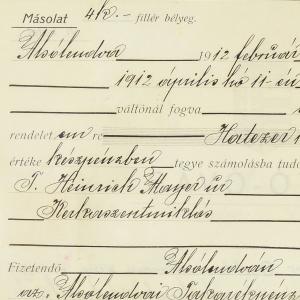 Másolat 4k.– fillér bélyeg.
Alsólendva 1912 február
1912 április hó 11-én
váltónál fogva
rendelet em re Hatezer
értéke készpénzben tegye számolásba tudó
T. Heinrich Mayer úr
Kerkaszentmiklós
Fizetendő Alsólendván
az. Alsólendvai Takarékpénz